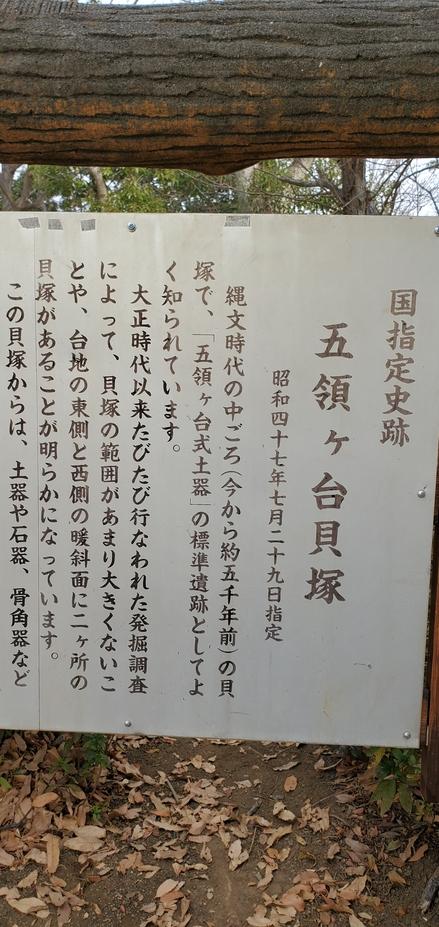 国指定史跡
五領ヶ台貝塚
昭和四十七年七月二十九日指定
縄文時代の中ごろ(今から約五千年前)の貝
塚で、「五領ヶ台式土器」の標準遺跡としてよ
く知られています。
大正時代以来たびたび行なわれた発掘調査
によって、貝塚の範囲があまり大きくないこ
とや、台地の東側と西側の暖斜面に二ヶ所の
貝塚があることが明らかになっています。
この貝塚からは、土器や石器、骨角器など